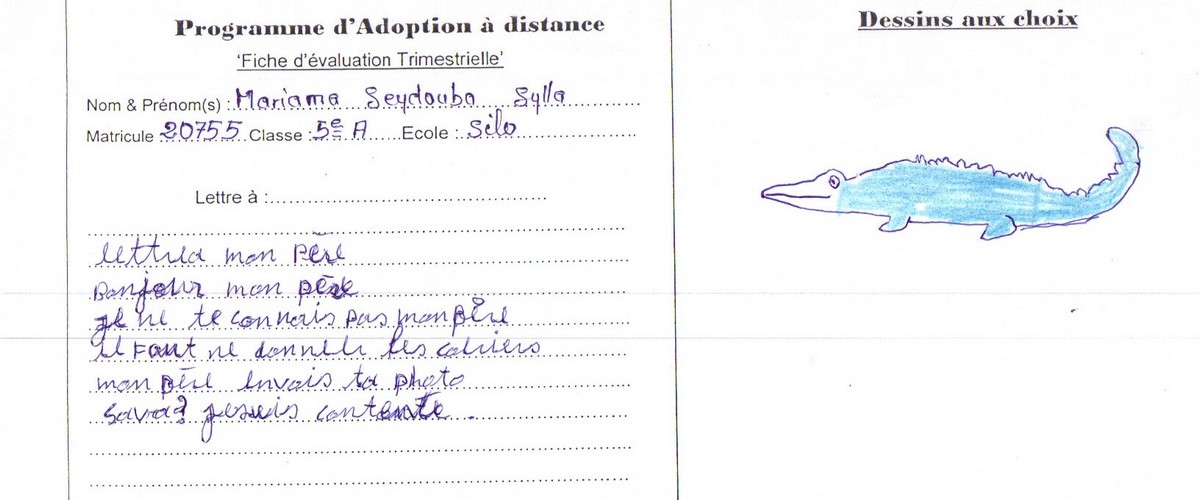 Programme d'Adoption à distance
'Fiche d'évaluation Trimestrielle'
Nom & Prénom(s) : Mariama Seydouba Sylla
Matricule 20755 Classe : 5e A Ecole : Silo
Lettre à :
lettrea mon père
Bonjour mon père
je ne te connais pas mon père
il Faut ne donneh les cahiers
mon père envois ta photo
Sava? jesuis contente.
Dessins aux choix